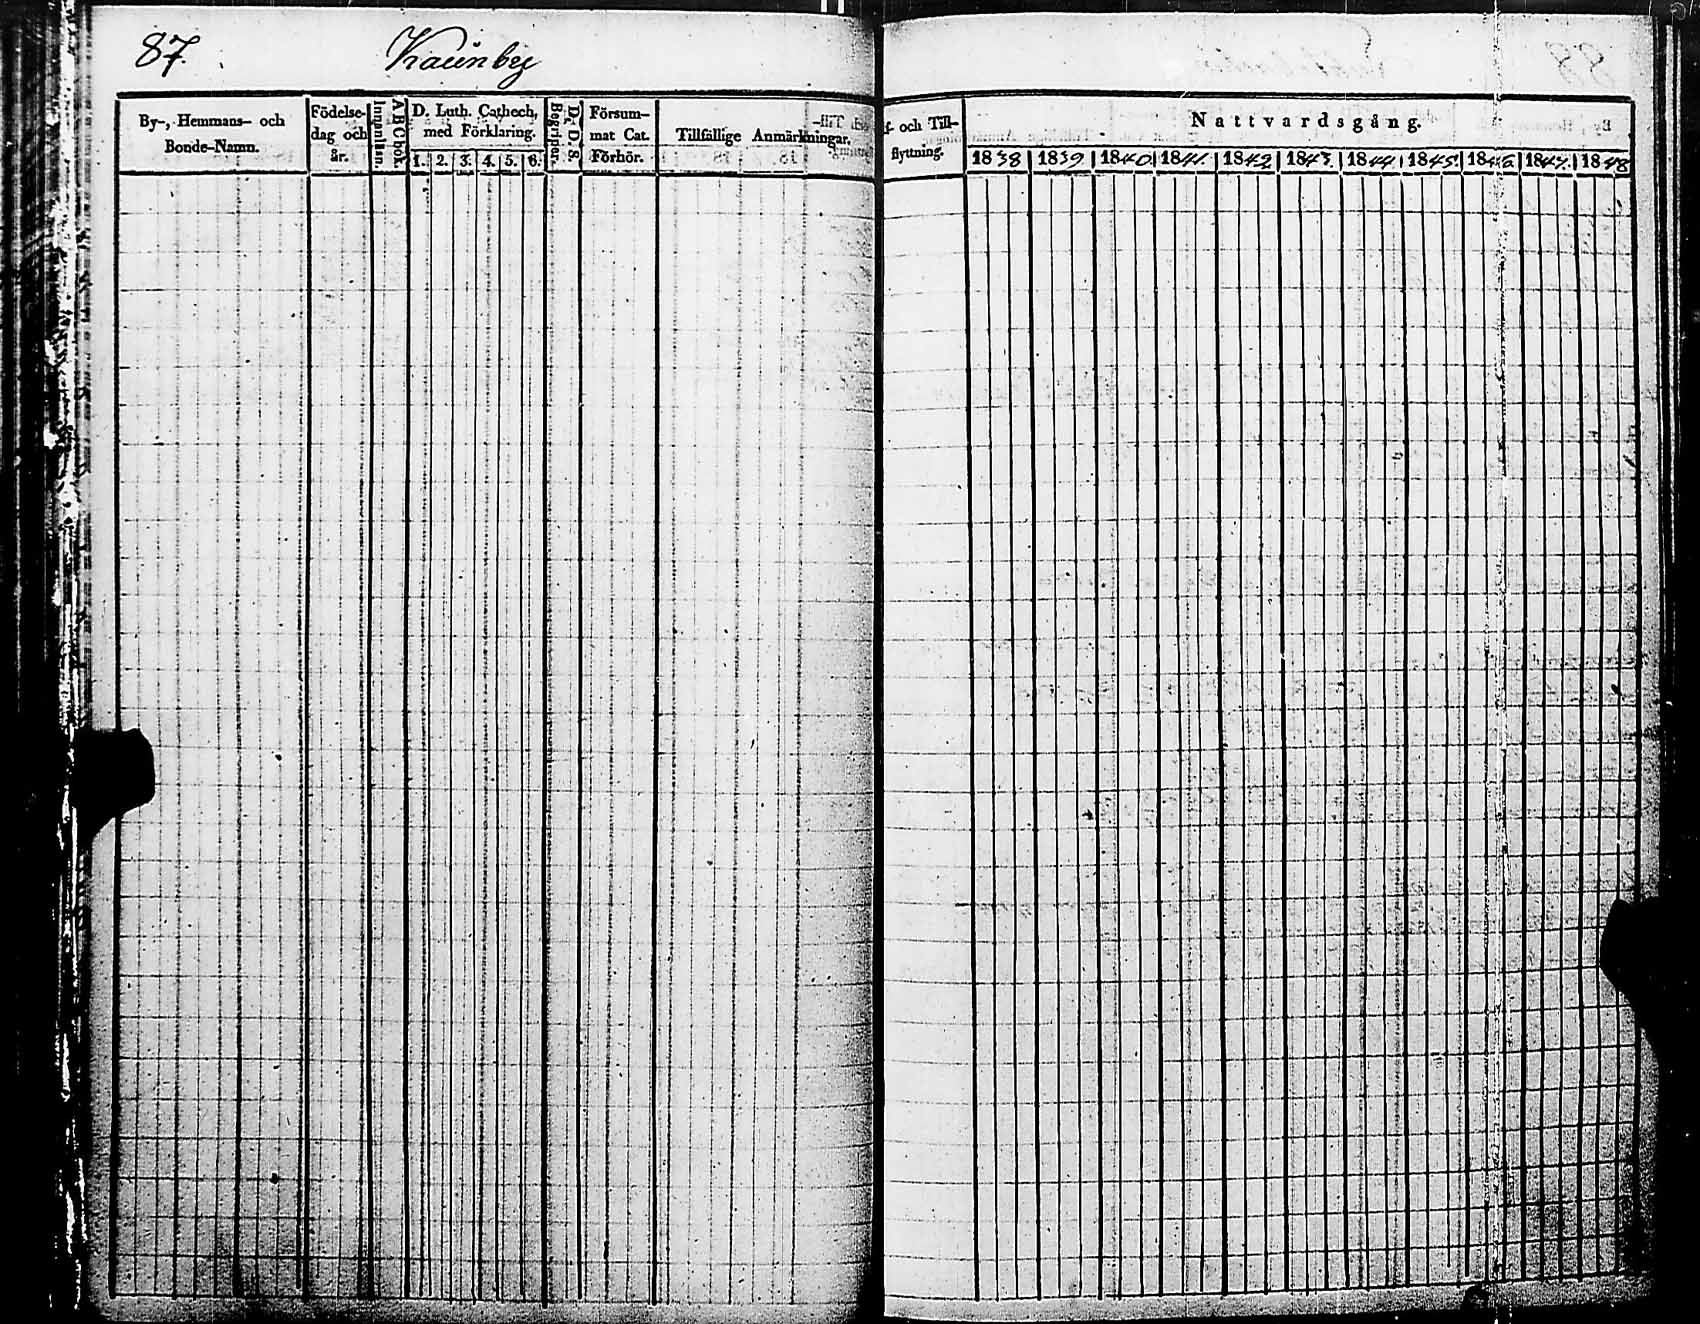 87. Kaunbey
By-, Hemmans- och
Bonde-Namn.
Födelse-
dag och
år.
ABCbok.
Innantläs.
D. Luth. Cathech.
med Förklaring.
1. 2. 3. 4. 5. 6.
D. D. S.
Begriper.
Försum-
mat Cat.
Förhör.
Tillfällige Anmärkningar.
f- och Till-
flyttning.
Nattvardsgång.
1838 1839 1840. 1841. 1842 1843. 1844. 1845. 1846. 1847. 1848